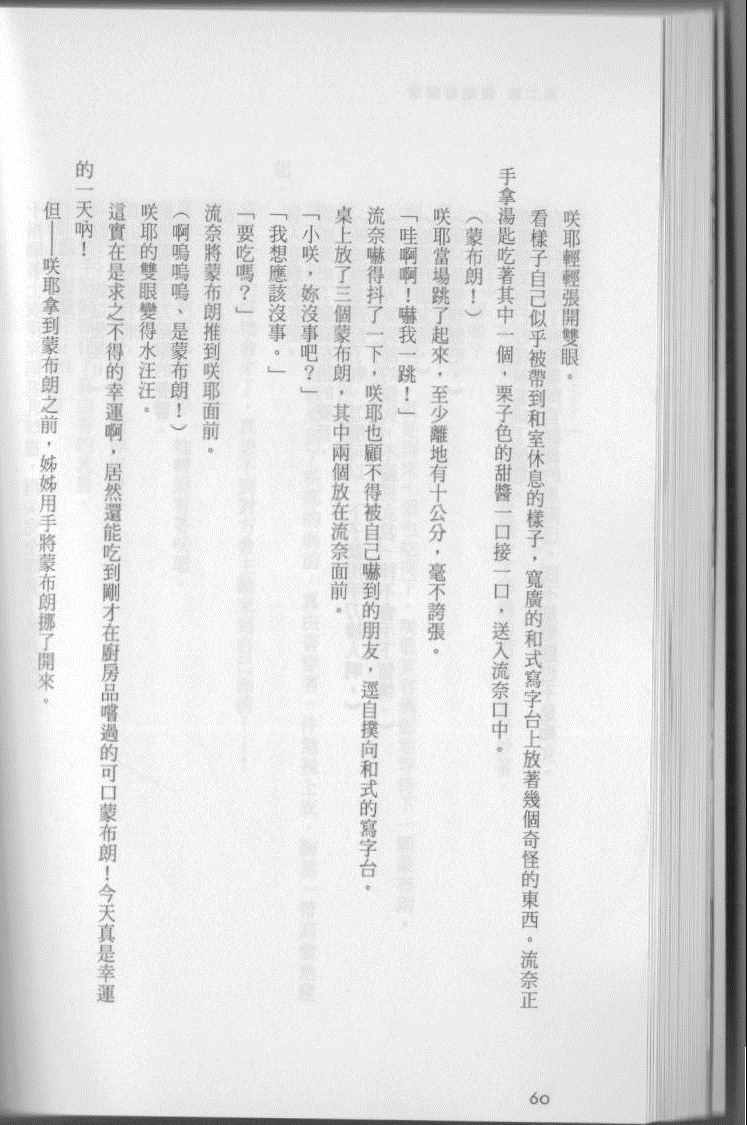 咲耶輕輕張開雙眼。
看樣子自己似乎被帶到和室休息的樣子，寬廣的和式寫字台上放著幾個奇怪的東西。流奈正
手拿湯匙吃著其中一個，栗子色的甜醬一口接一口，送入流奈口中。
（蒙布朗！）
咲耶當場跳了起來，至少離地有十公分，毫不誇張。
「哇啊啊！嚇我一跳！」
流奈嚇得抖了一下，咲耶也顧不得被自己嚇到的朋友，逕自撲向和式的寫字台。
桌上放了三個蒙布朗，其中兩個放在流奈面前。
「小咲，妳沒事吧？」
「我想應該沒事。」
「要吃嗎？」
流奈將蒙布朗推到咲耶面前。
（啊嗚嗚嗚、是蒙布朗！）
咲耶的雙眼變得水汪汪。
這實在是求之不得的幸運啊，居然還能吃到剛才在廚房品嚐過的可口蒙布朗！今天真是幸運
的一天吶！
但──咲耶拿到蒙布朗之前，姊姊用手將蒙布朗挪了開來。
60